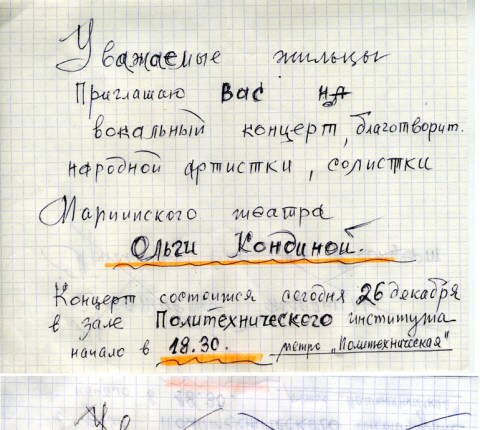 Уважаемые жильцы
Приглашаю Вас на
вокальный концерт, благотворит.
народной артистки, солистки
Мариинского театра
Ольги Кондиной.
Концерт состоится сегодня 26 декабря
в зале Политехнического института
начало в 18.30. метро „Политехническая"